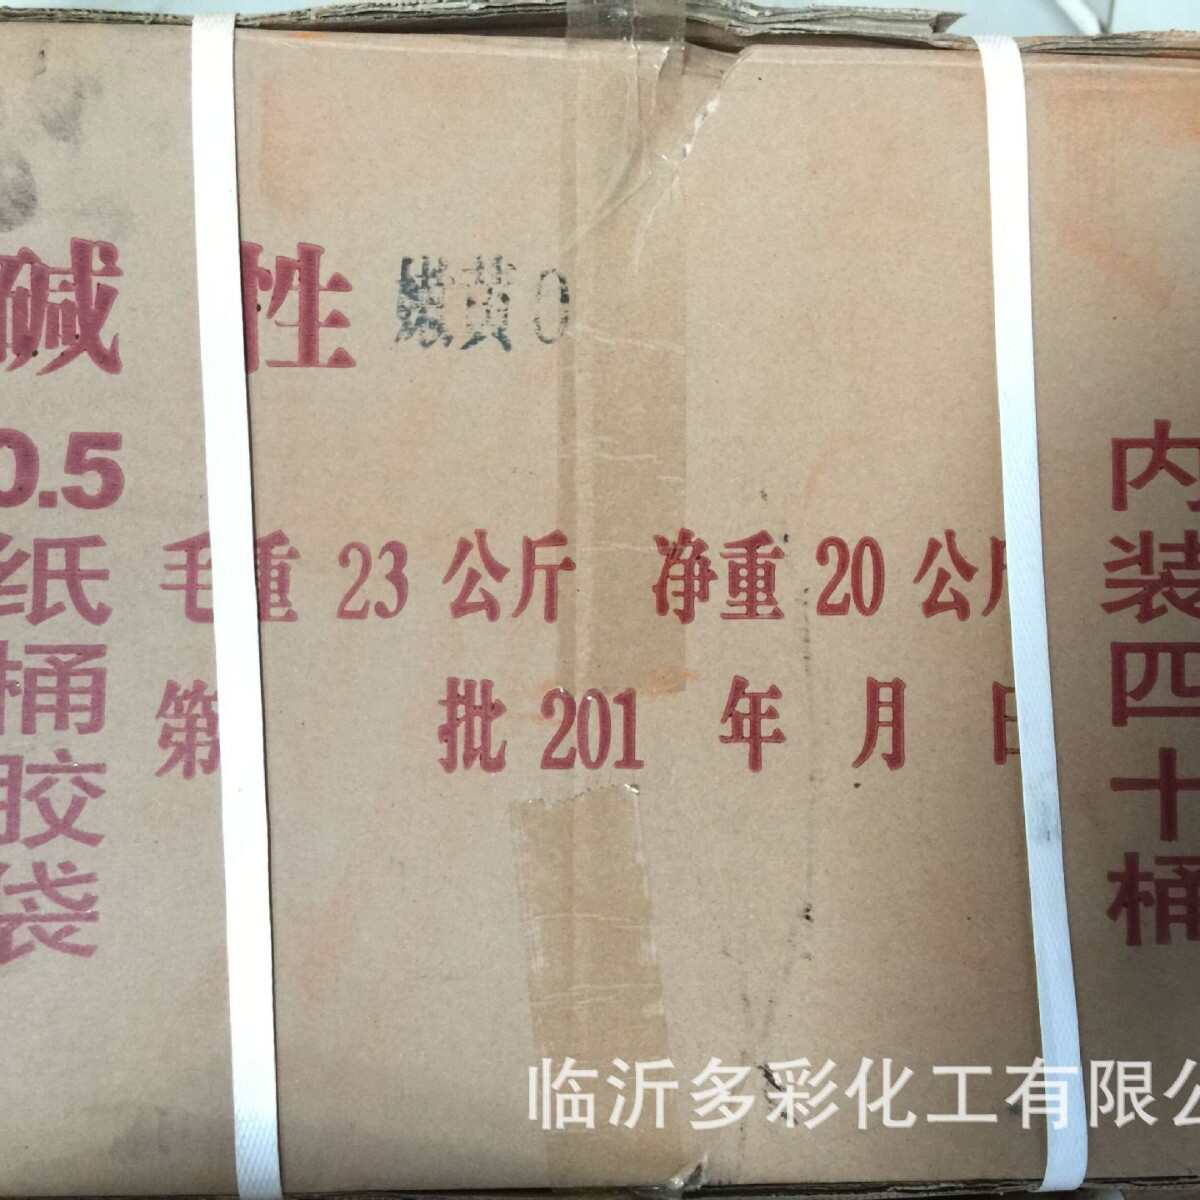 碱性 嫩黄O
0.5纸桶胶袋
毛重 23 公斤 净重 20 公斤
第 批 201 年 月 日
内装四十桶
临沂多彩化工有限公